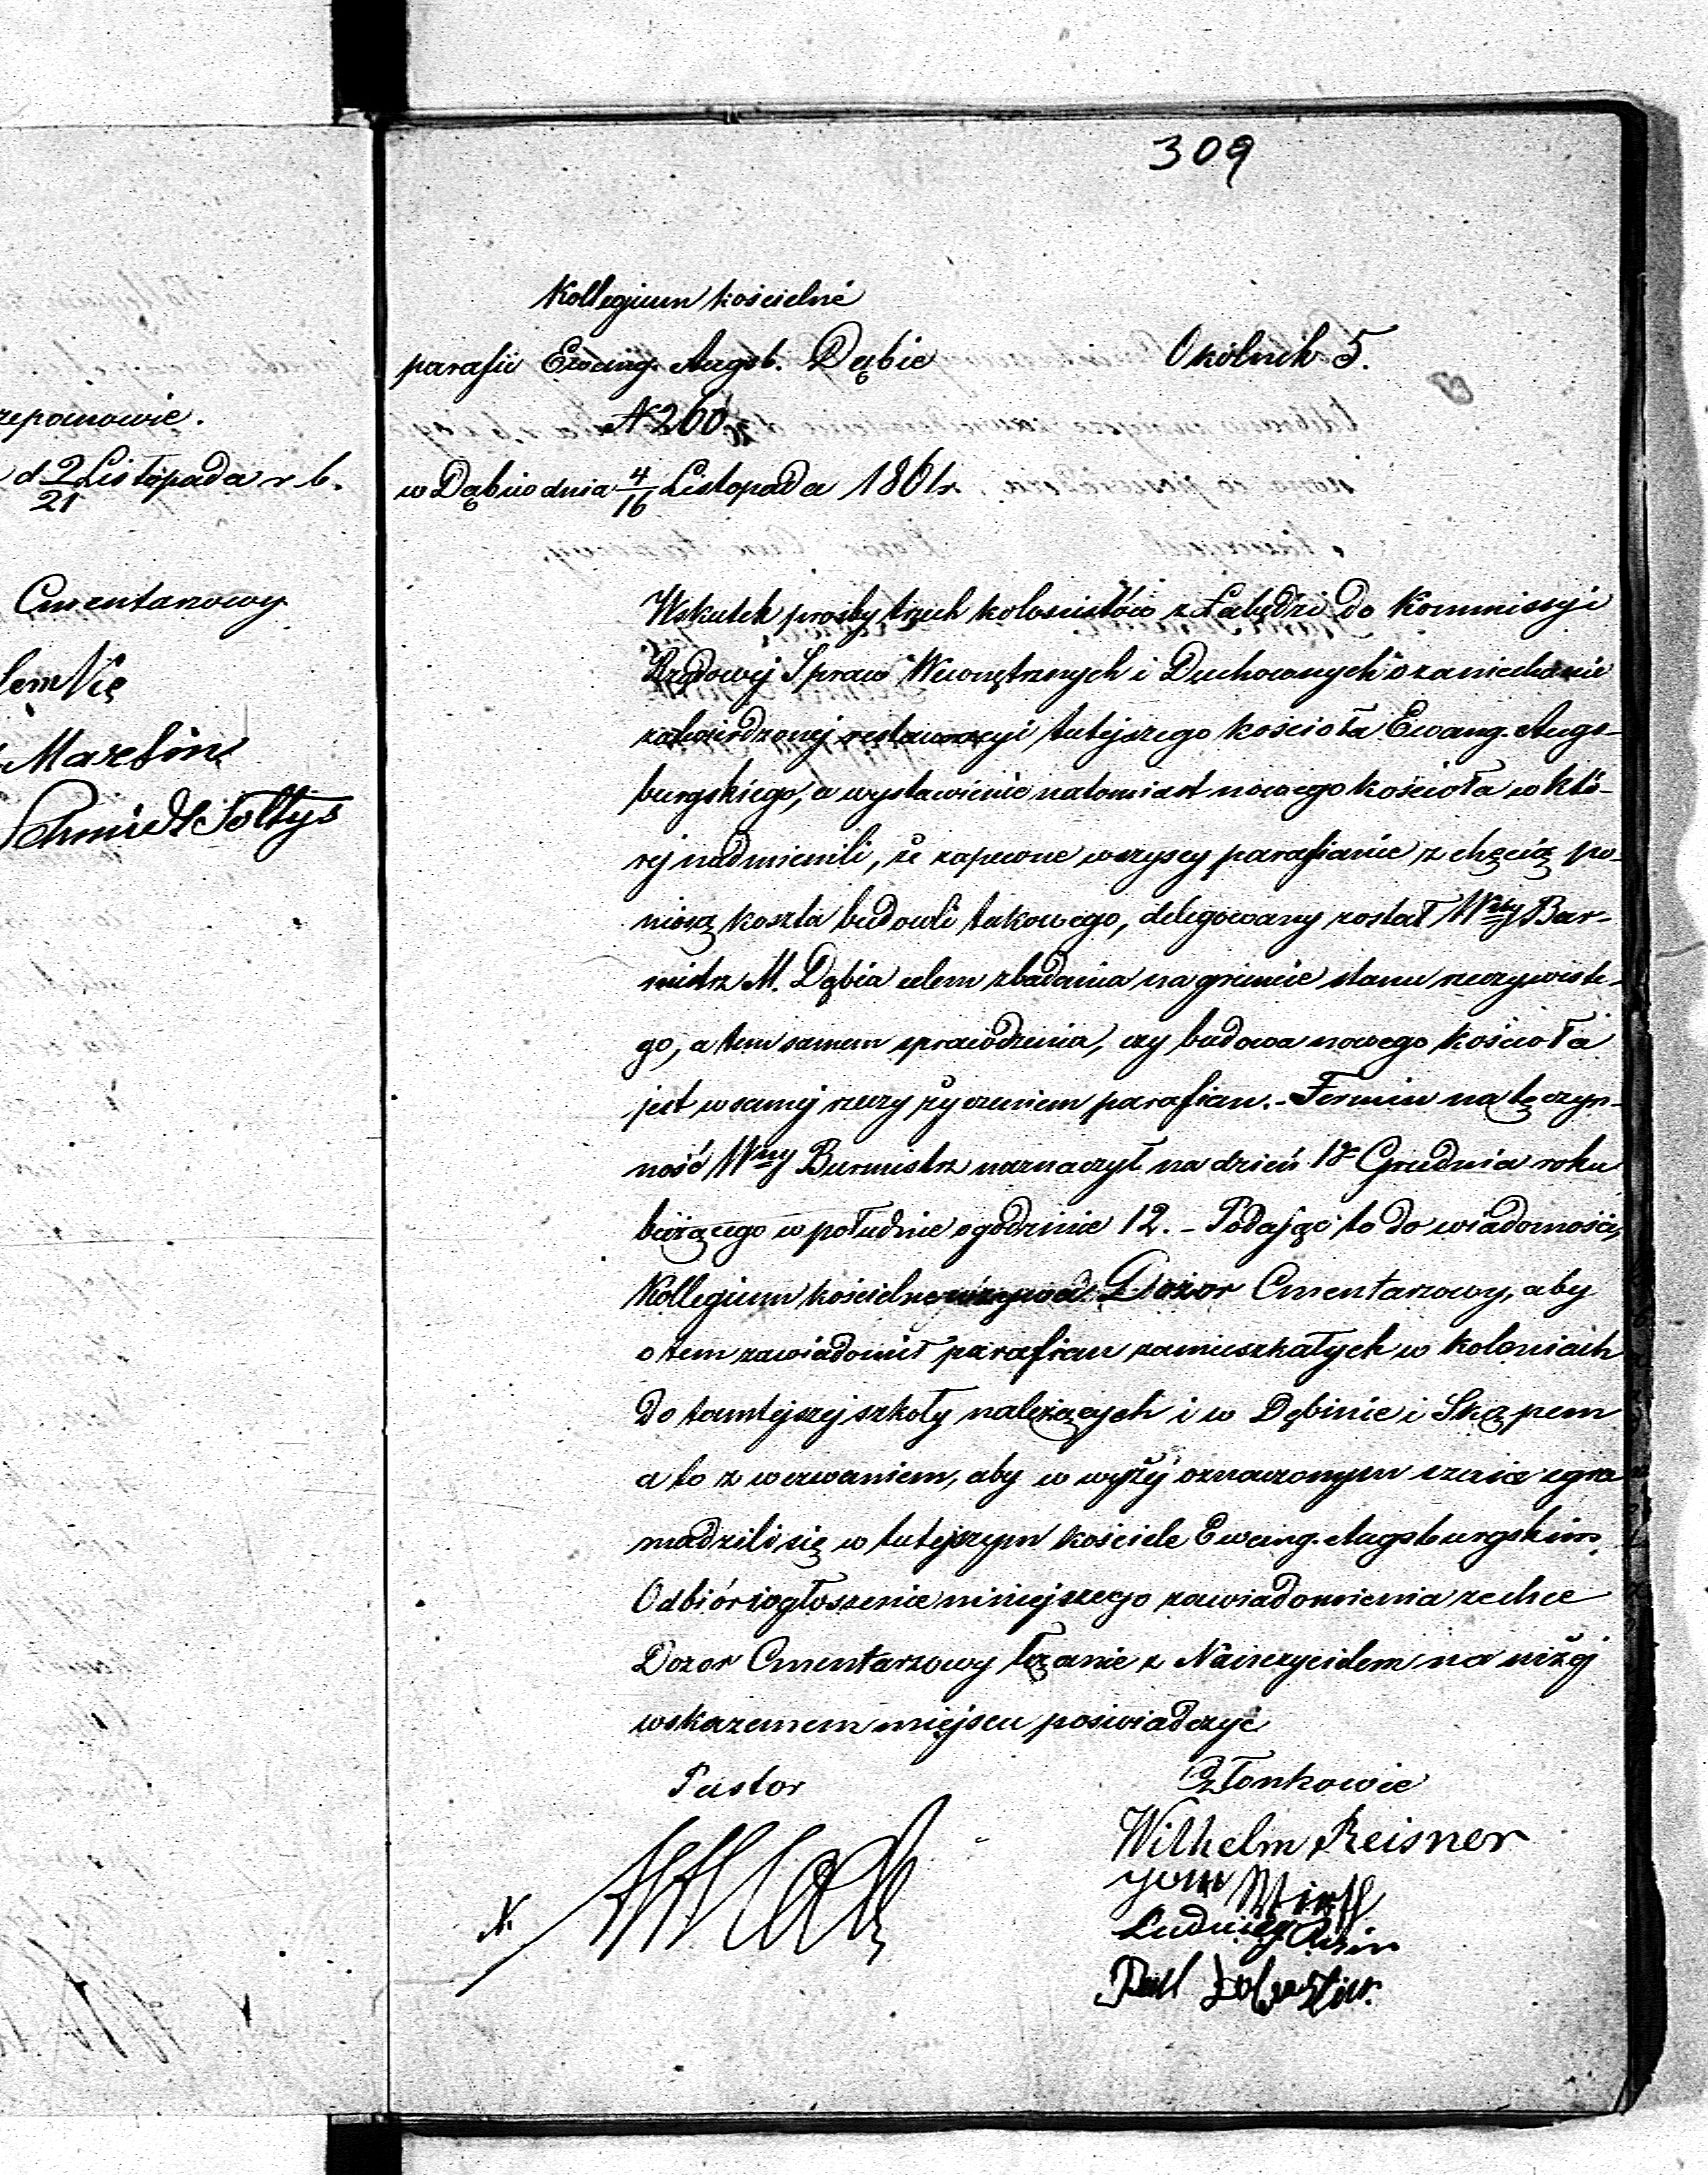 309
Kollegium kościelné
parafii Ewang. Augsb. Dąbie
Okólnik 5.
N 260.
w Dąbiu dnia 4/16 Listopada 1861 r.
Wskutek prośby trzech kolonistów z Łabędzi do Kommissyi
Rządowéj Spraw Wewnętrznych i Duchownych o zaniechanie
zatwierdzonéj restauracyi tutejszego kościoła Ewang. Augs-
burgskiego, a wystawienie natomiast nowego kościoła w któ-
réj nadmienili, że zapewne wszyscy parafianie z chęcią po-
niosą koszta budowli takowego, delegowany został Wny Bur-
mistrz M. Dąbia celem zbadania na gruncie stanu rzeczywiste-
go, a tem samem sprawdzenia, czy budowa nowego kościoła
jest w saméj rzeczy życzeniem parafian. - Termin na tę czyn-
ność Wny Burmistrz naznaczył na dzień Grudnia roku
bieżącego w południe o godzinie 12. - Podając to do wiadomości,
Kollegium kościelne wzywa Dozor Cmentarzowy, aby
o tem zawiadomił parafian zamieszkałych w koloniach
do tamtejszéj szkoły należących i w Dębinie i Skąpem
a to z wezwaniem, aby w wyżéj oznaczonym czasie zgro
madzili się w tutejszym kościele Ewang. Augsburgskim.
Odbiór i ogłoszenie niniejszego zawiadomienia zechce
Dozor Cmentarzowy łącznie z Nauczycielem na niżéj
wskazanem miejscu poświadczyć
Pastor
Członkowie
Wilhelm Reisner
Ludwig
zepanowie.
d 2/21 Listopada r b.
Cmentarzowy
Martin
Schmidt Sołtys